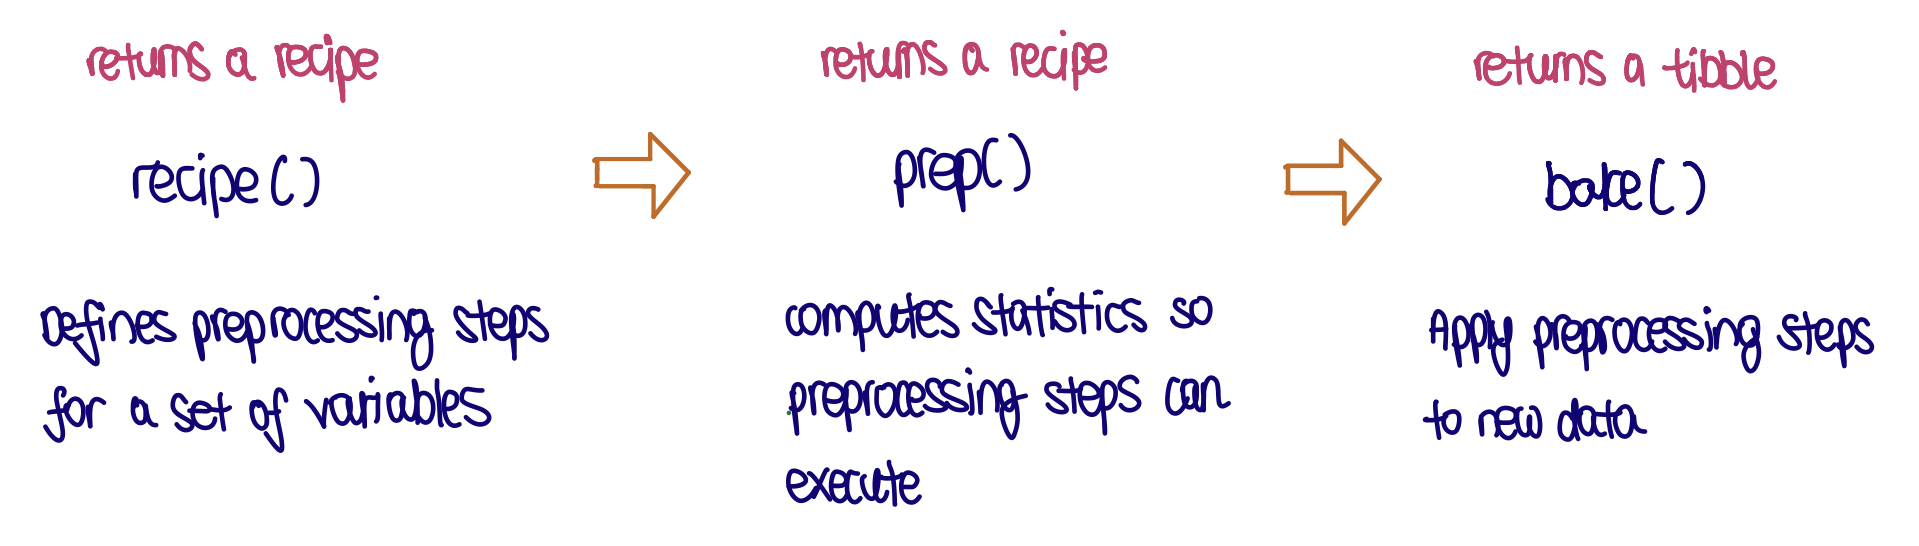 returns a recipe
recipe()
Defines preprocessing steps
for a set of variables
returns a recipe
prep()
computes statistics so
preprocessing steps can
execute
returns a tibble
bake()
Apply preprocessing steps
to new data